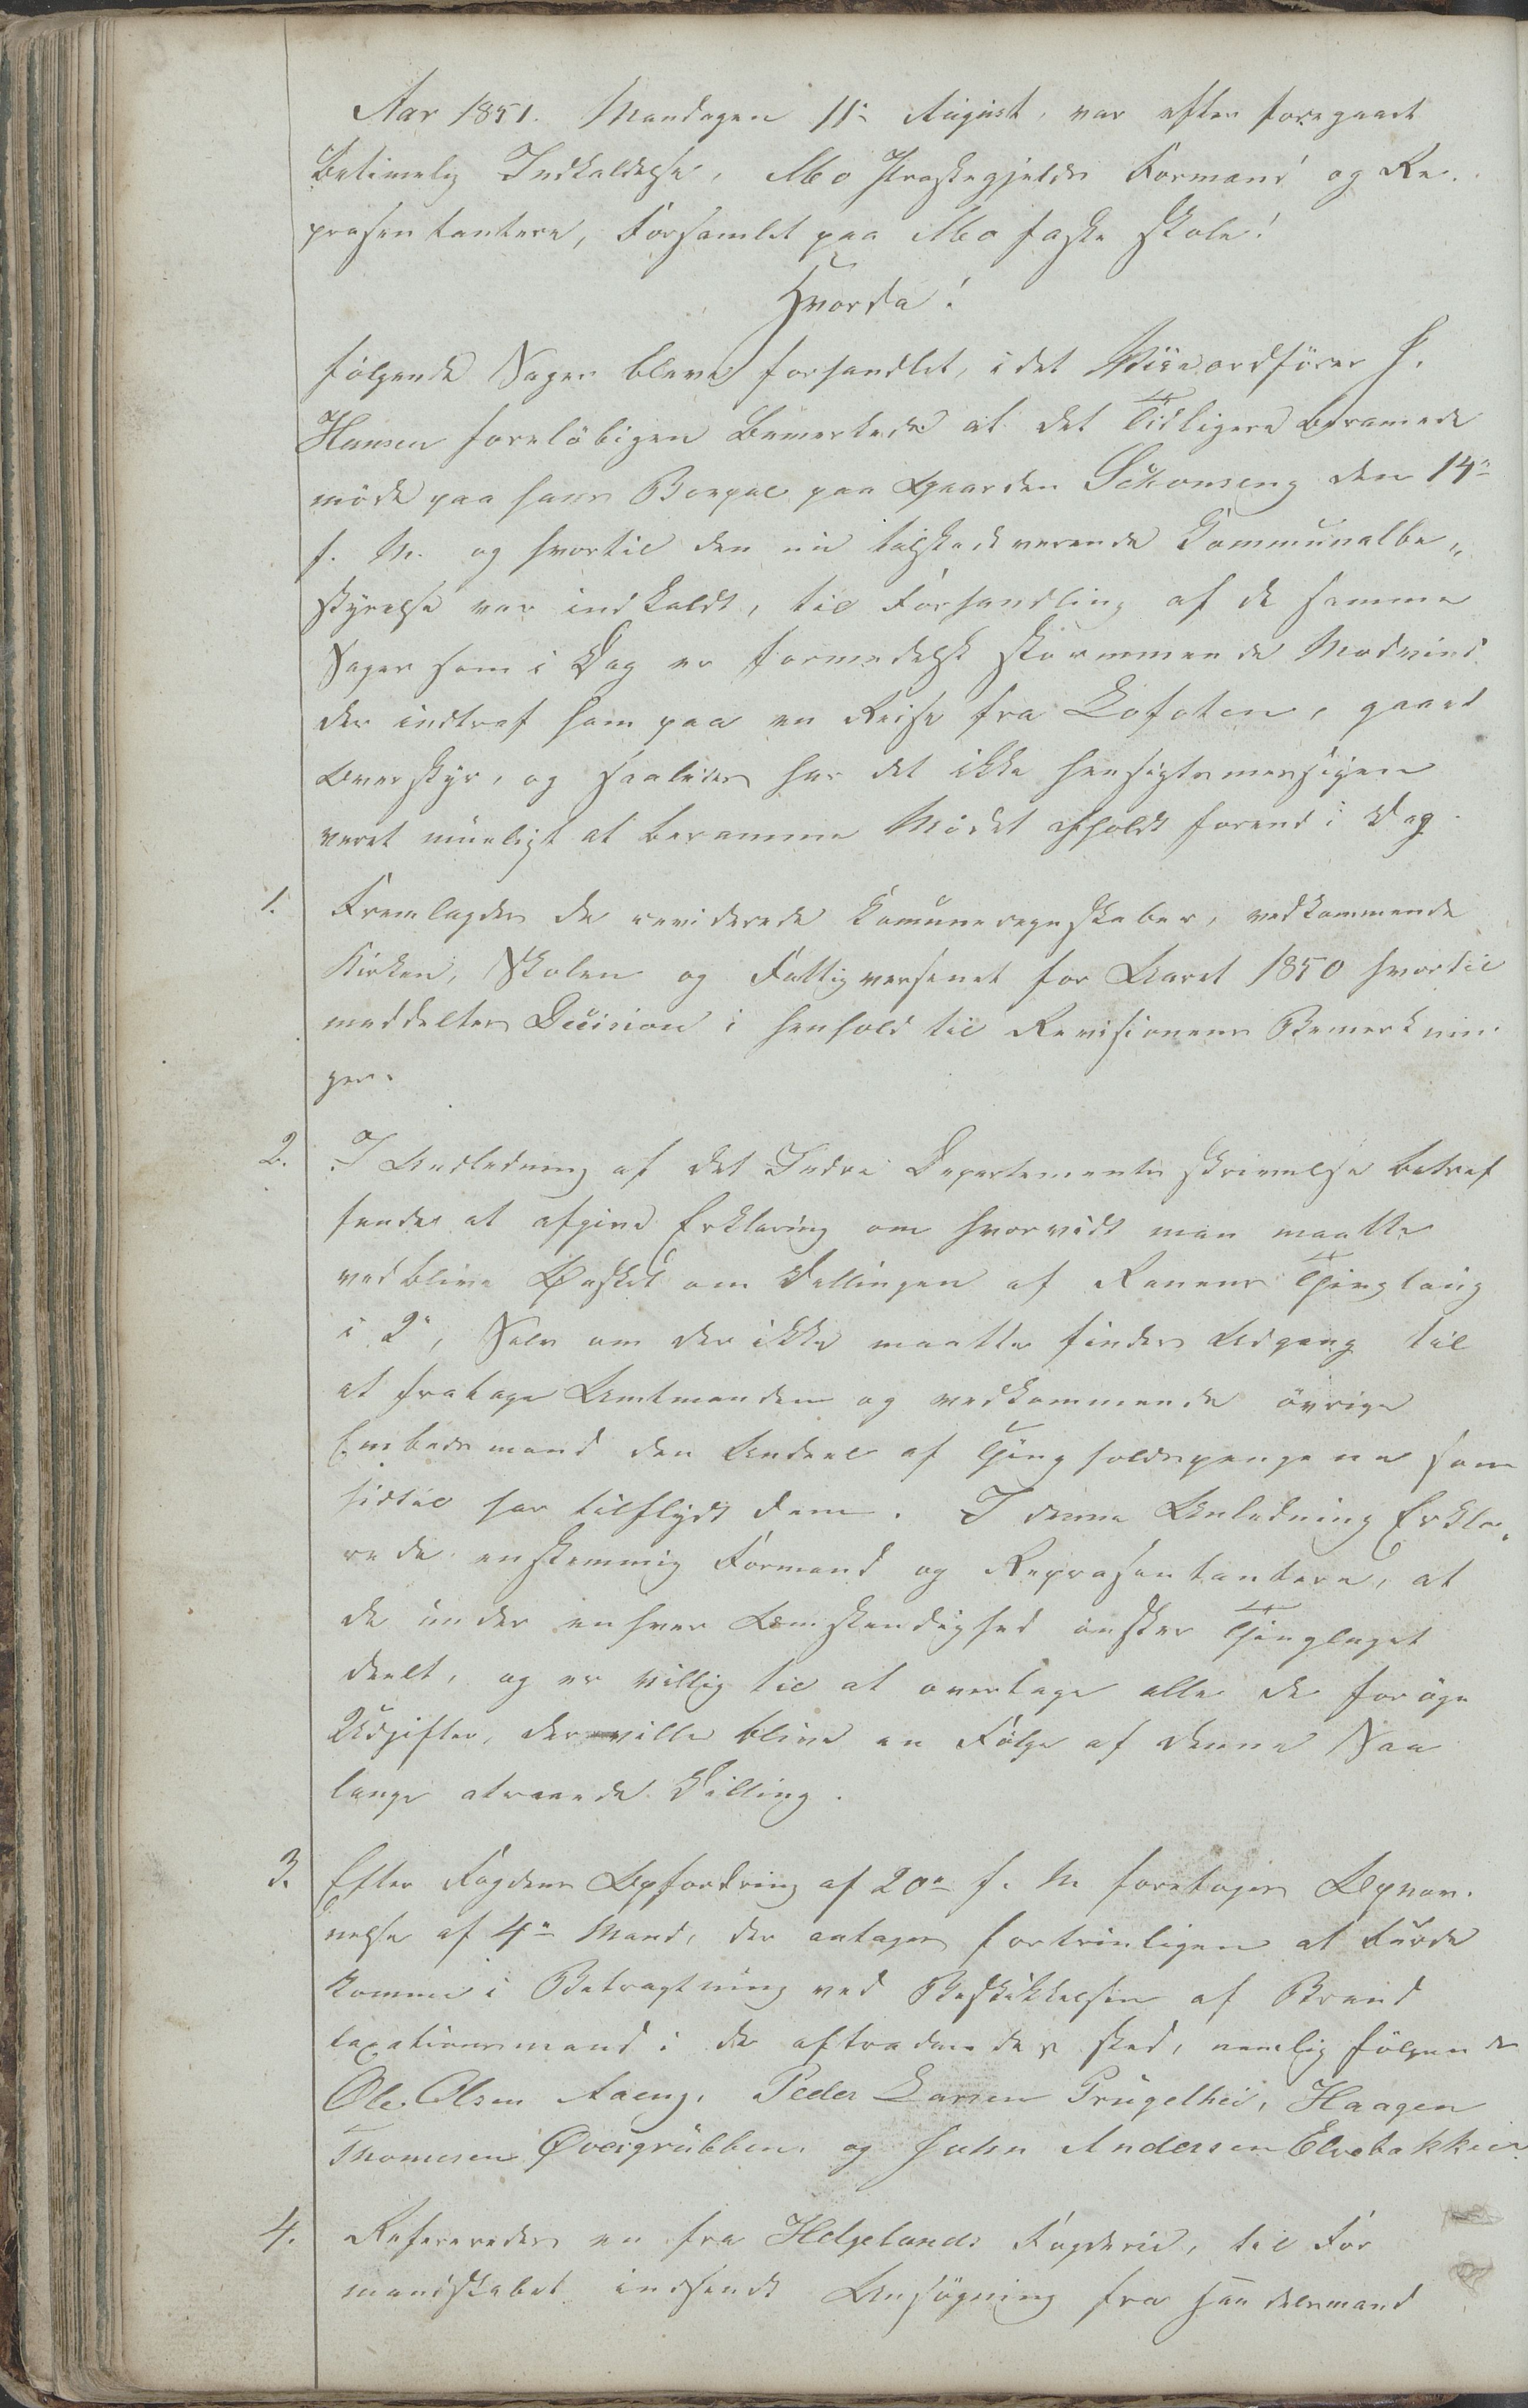 Aar 1851. Mandagen 11te August, var efter foregaaet
betimelig Indkaldelse, Mo Præstegjelds Formænd og Re-
præsentantere, Forsamlet paa Mo faste Skole!
Hvorda!
følgende Sager bleve forhandlet, idet Viceordfører J.
Hansen foreløbigen Bemærkede at det Tidligere beramede
møde paa hans Bopæl paa Gaarden Schonseng den 14de
f. M. og hvortil den nu tilstedeværende Communalbe„
styrelse var indkaldt, til Forhandling af de samme
Sager som i Dag er formedelst stormmende Modvind
der indtraf ham paa en Reise fra Lofoten, gaaet
Overstyr, og saaledes har det ikke hensigtsmessigen
veret mueligt at beramme Mødet afholdt forend i Dag.
1. Fremlagdes de reviderede Communeregnskaber, vedkommende
Kirken, Skolen og Fattigvesenet for Aaret 1850 hvortil
meddeltes Decision i henhold til Revisionens Bemerknin-
ger.
2. I Anledning af det Indre Departements skrivelse betref
fende at afgive Erklæring om hvorvidt man maatte
vedblive Ønsket om Dellingen af Ranens Thinglaug
i 2de, Selv om der ikke maatte findes Adgang til
at fratage Amtmanden og vedkommende øvrige
Embedsmænd den Andeel af Thingholdspengene som
hidtil har tilflydt dem. I denne Anledning Erklæ„
rede enstemmig Formænd og Repræsentantere, at
de under enhver Omstendighed ønsker Thinglaget
deelt, og er villig til at overtage alle de forøge
Udgifter, der ville blive en Følge af denne Saa
lenge attraaede Delling.
3. Efter Fogdens Opfordring af 20de f. M. foretoges Opnæv-
nelse af 4re Mænd, der antages fortrinligen at burde
komme i Betragtning ved Beskikkelsen af Brand
taxationsmænd i de aftrædendes sted, nemlig følgende
Ole Olsen Aaeng, Peder Larsen Prugelhei, Haagen
Thomesen Øversgrubben og John Andersen Elvebakken
4. Refereredes en fra Helgelands Fogderie, til For
mandskabet indsendt Ansøgning fra handelsmand